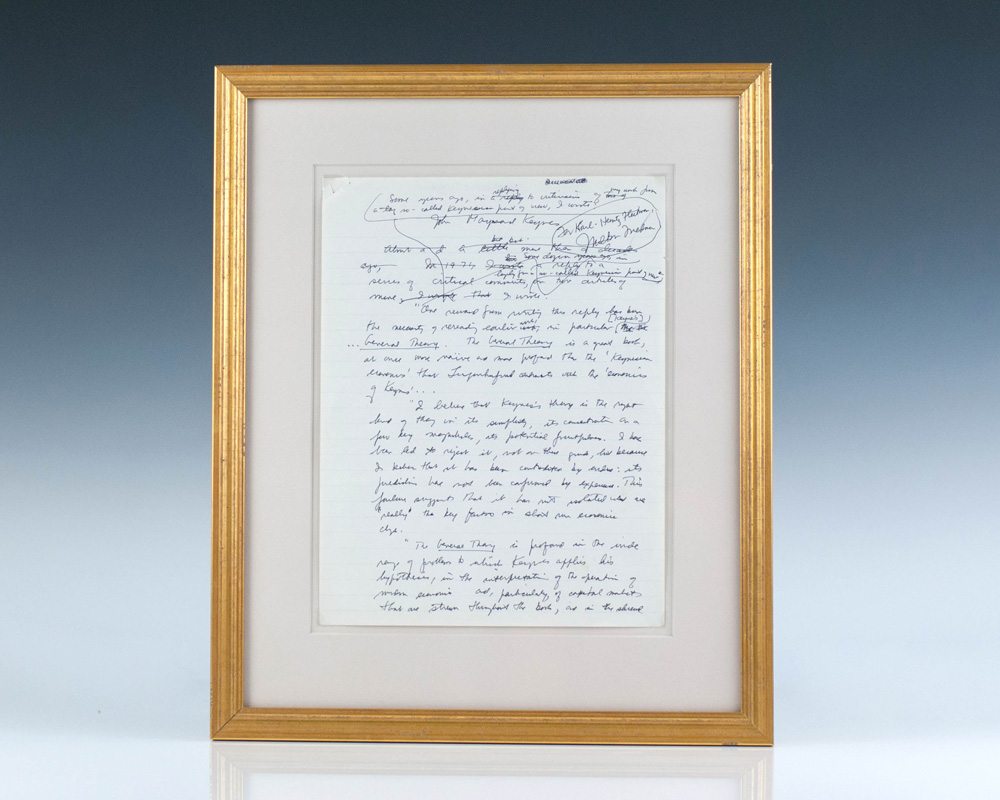 Some years ago, in a replying to criticisms of my work from
a so-called Keynesian point of view, I wrote:
John Maynard Keynes
For Karl-Heinz
Milton Friedman
About a little more than a decade
ago, In 1972 I wrote a reply to a
from a so-called Keynesian point of view
series of critical comments on two articles of
mine, I wrote that I wrote:
"One reward from writing this reply has been
the necessity of rereading earlier work, in particular [Keynes's]
... General Theory. The General Theory is a great book,
at once more naive and more profound than the 'Keynesian
economics' that Leijonhufvud contrasts with the 'economics
of Keynes'....
"I believe that Keynes's theory is the right
kind of theory in its simplicity, its concentration on a
few key magnitudes, its potential fruitfulness. I have
been led to reject it, not on these grounds, but because
I believe that it has been contradicted by evidence: its
predictions have not been confirmed by experience. This
failure suggests that it has not isolated what are
"really" the key factors in short run economic
change.
"The General Theory is profound in the wide
range of problems to which Keynes applies his
hypothesis, in the interpretation of the operation of
modern economies and, particularly, of capital markets
that are strewn throughout the book, and in the shrewd